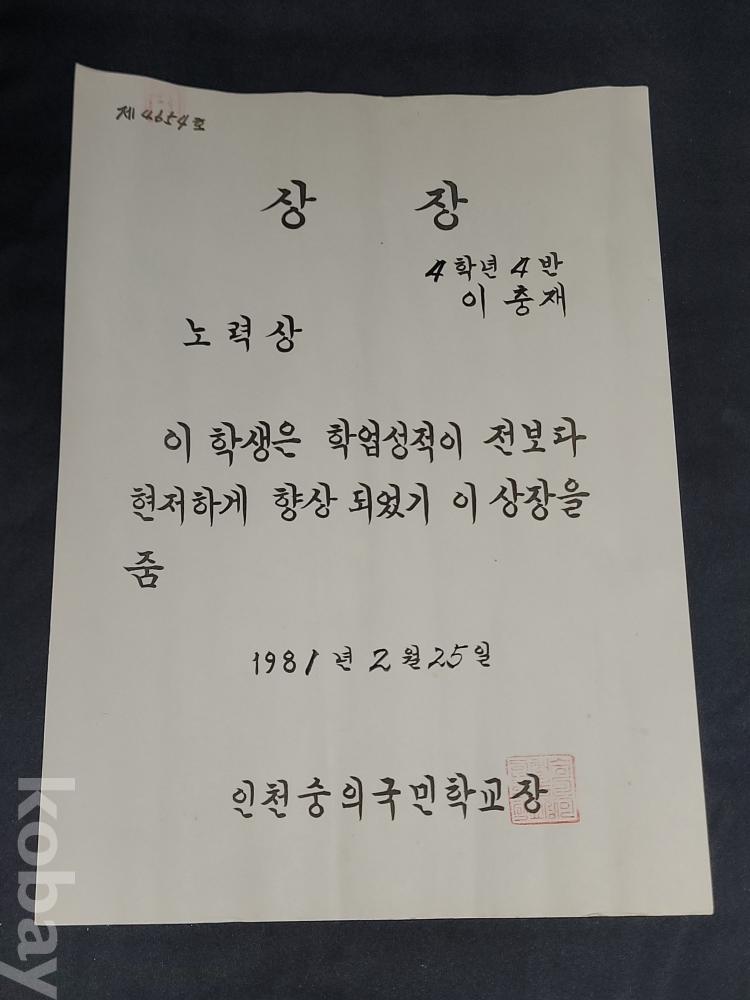 제 4654 호
상 장
4 학년 4 반
이 충 재
노 력 상
이 학생은 학업성적이 전보다
현저하게 향상 되었기 이 상장을
줌
1981 년 2 월 25 일
인천숭의국민학교장
kobay